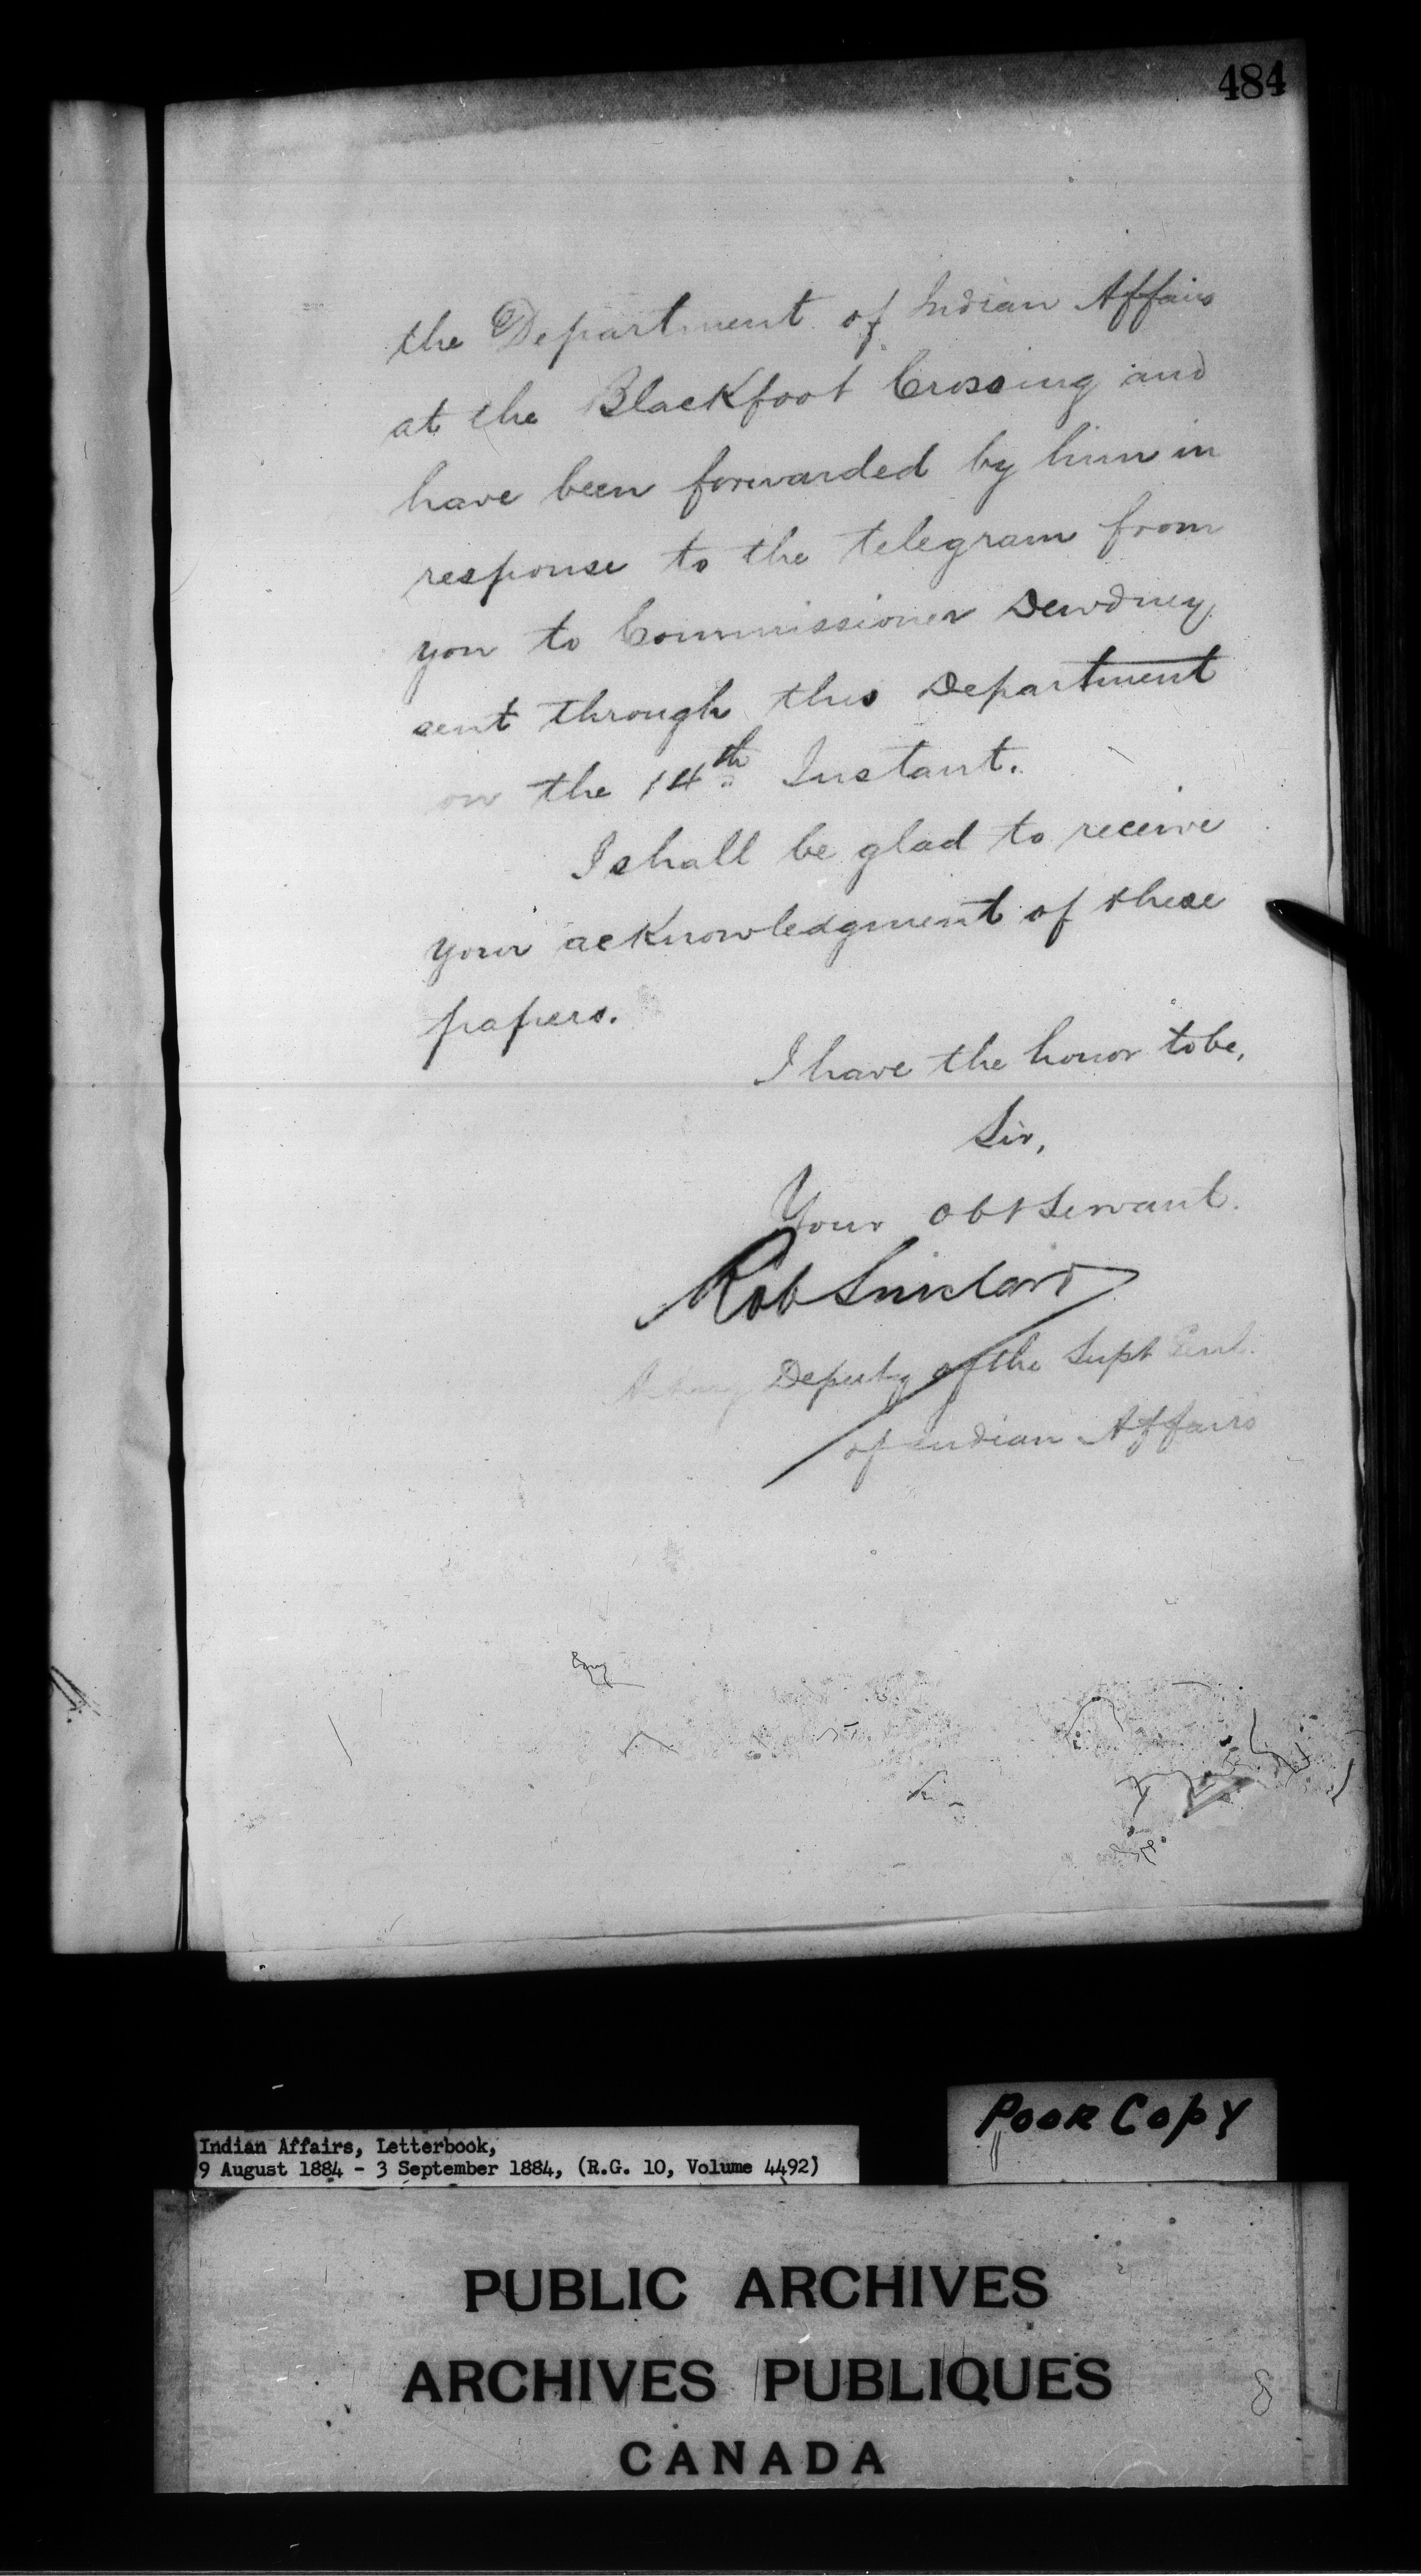 484
the Department of Indian Affairs
at the Blackfoot Crossing and
have been forwarded by him in
response to the telegram from
you to Commissioner Dewdney
sent through this Department
on the 14th Instant.
I shall be glad to receive
your acknowledgment of these
papers.
I have the honor to be,
Sir,
Your obt Servant.
Rob Sinclair
Acting Deputy of the Supt Genl.
of Indian Affairs
Poor Copy
Indian Affairs, Letterbook,
9 August 1884 - 3 September 1884, (R.G. 10, Volume 4492)
PUBLIC ARCHIVES
ARCHIVES PUBLIQUES
CANADA